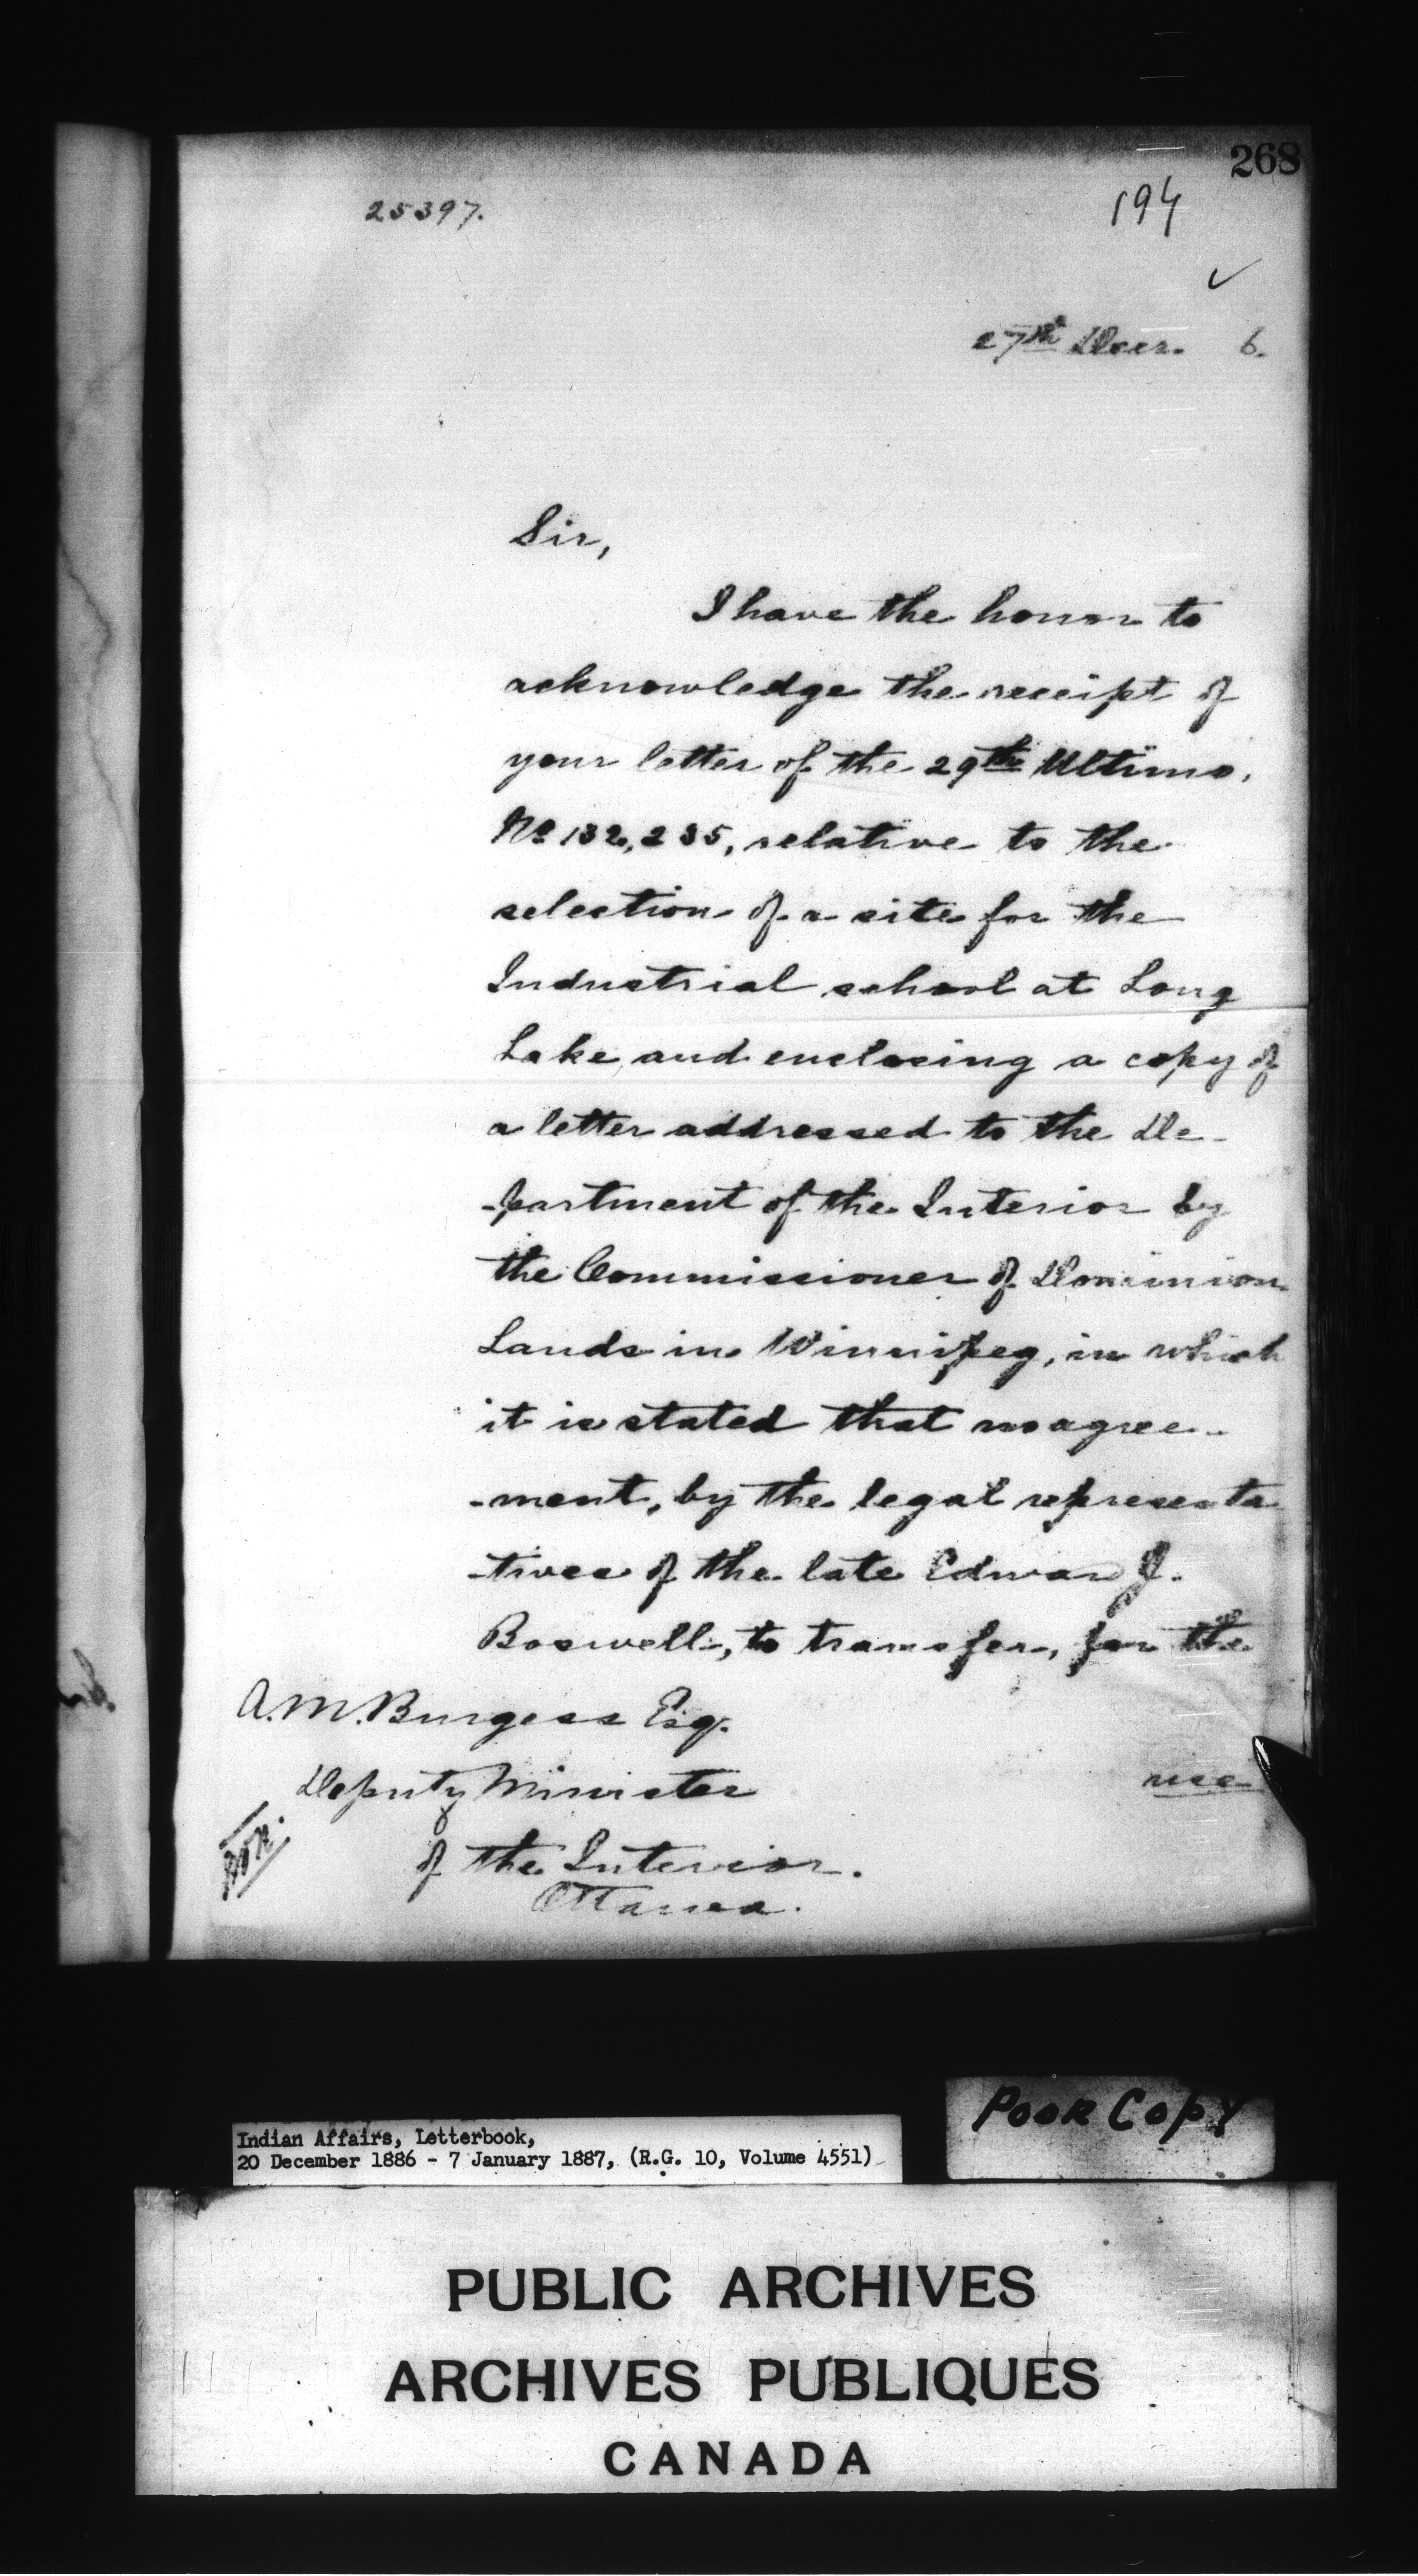 268
25397.
194
27th Decr. 6.
Sir,
I have the honor to
acknowledge the receipt of
your letter of the 29th Ultimo,
No 132,235, relative to the
selection of a site for the
Industrial school at Long
Lake, and enclosing a copy of
a letter addressed to the De-
-partment of the Interior by
the Commissioner of Dominion
Lands in Winnipeg, in which
it is stated that no agree-
-ment, by the legal representa
-tives of the late Edward J.
Boswell, to transfer, for the
A. M. Burgess Esq.
Deputy Minister
use
of the Interior.
Ottawa.
Poor Copy
Indian Affairs, Letterbook,
20 December 1886 - 7 January 1887, (R.G. 10, Volume 4551)
PUBLIC ARCHIVES
ARCHIVES PUBLIQUES
CANADA